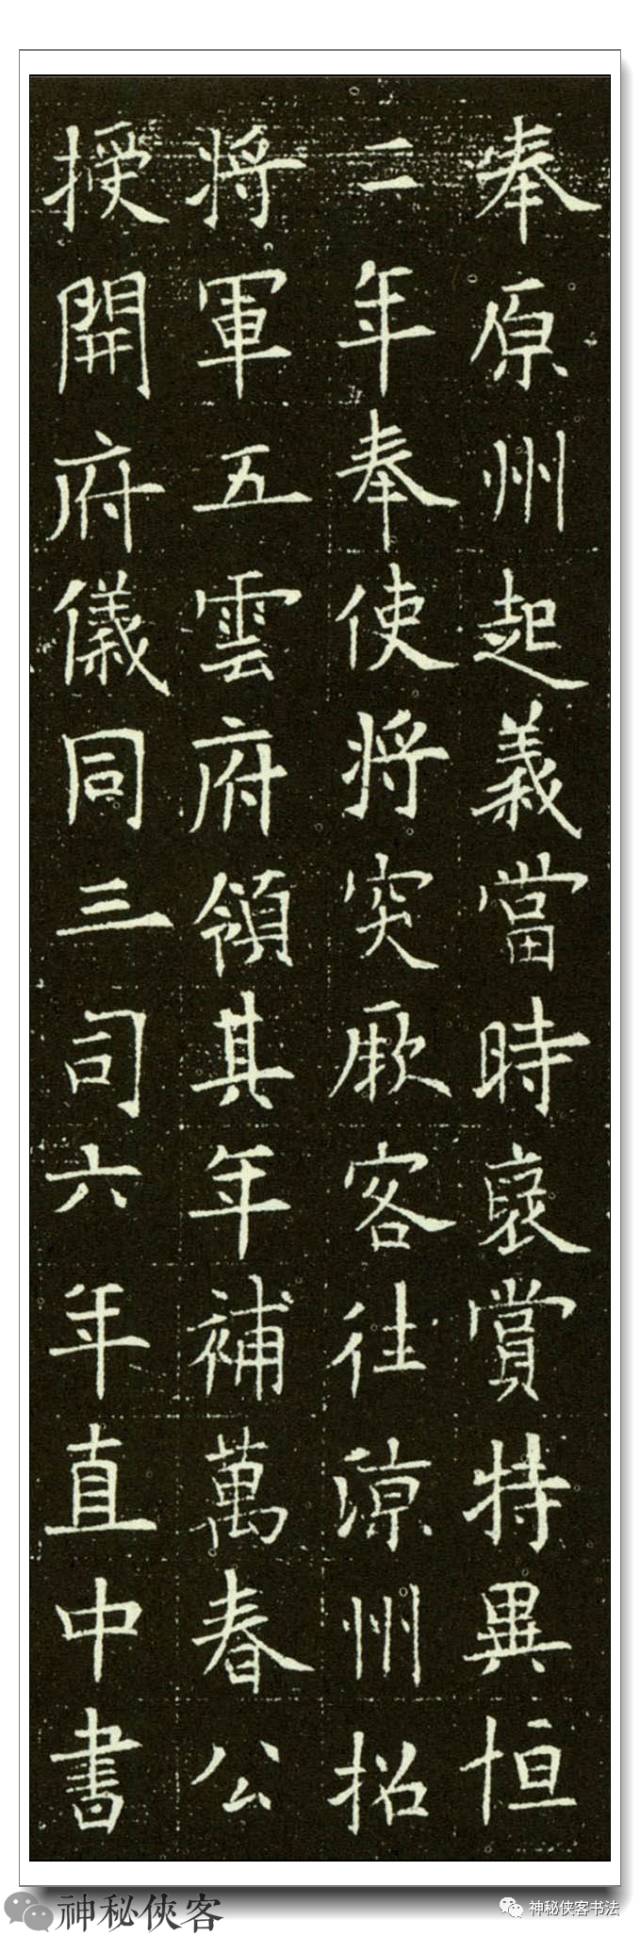 奉原州起義當時褒賞特異恒
二年奉使将突厥客往涼州招
将軍五雲府領其年補萬春公
授開府儀同三司六年直中書
神秘俠客
神秘侠客书法